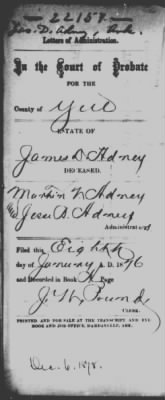 22157
Letters of Administration.
In the Court of Probate
FOR THE
County of Yell
ESTATE OF
James D Adney
DECEASED.
Martin V Adney
Jesse B Adney
Administrators
Filed this Eighth
day of January A.D. 1876
and Recorded in Book Page
CLERK.
PRINTED AND FOR SALE AT THE TRANSCRIPT AND EVE
BOOK AND JOB OFFICE, DARDANELLE, ARK.
Dec. 6, 1878.